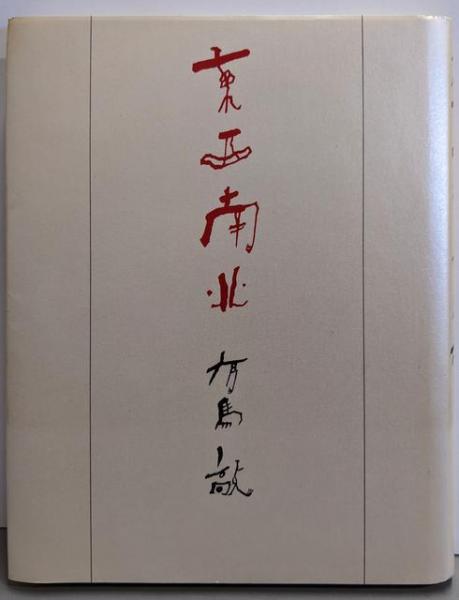 東西南北
有馬敲